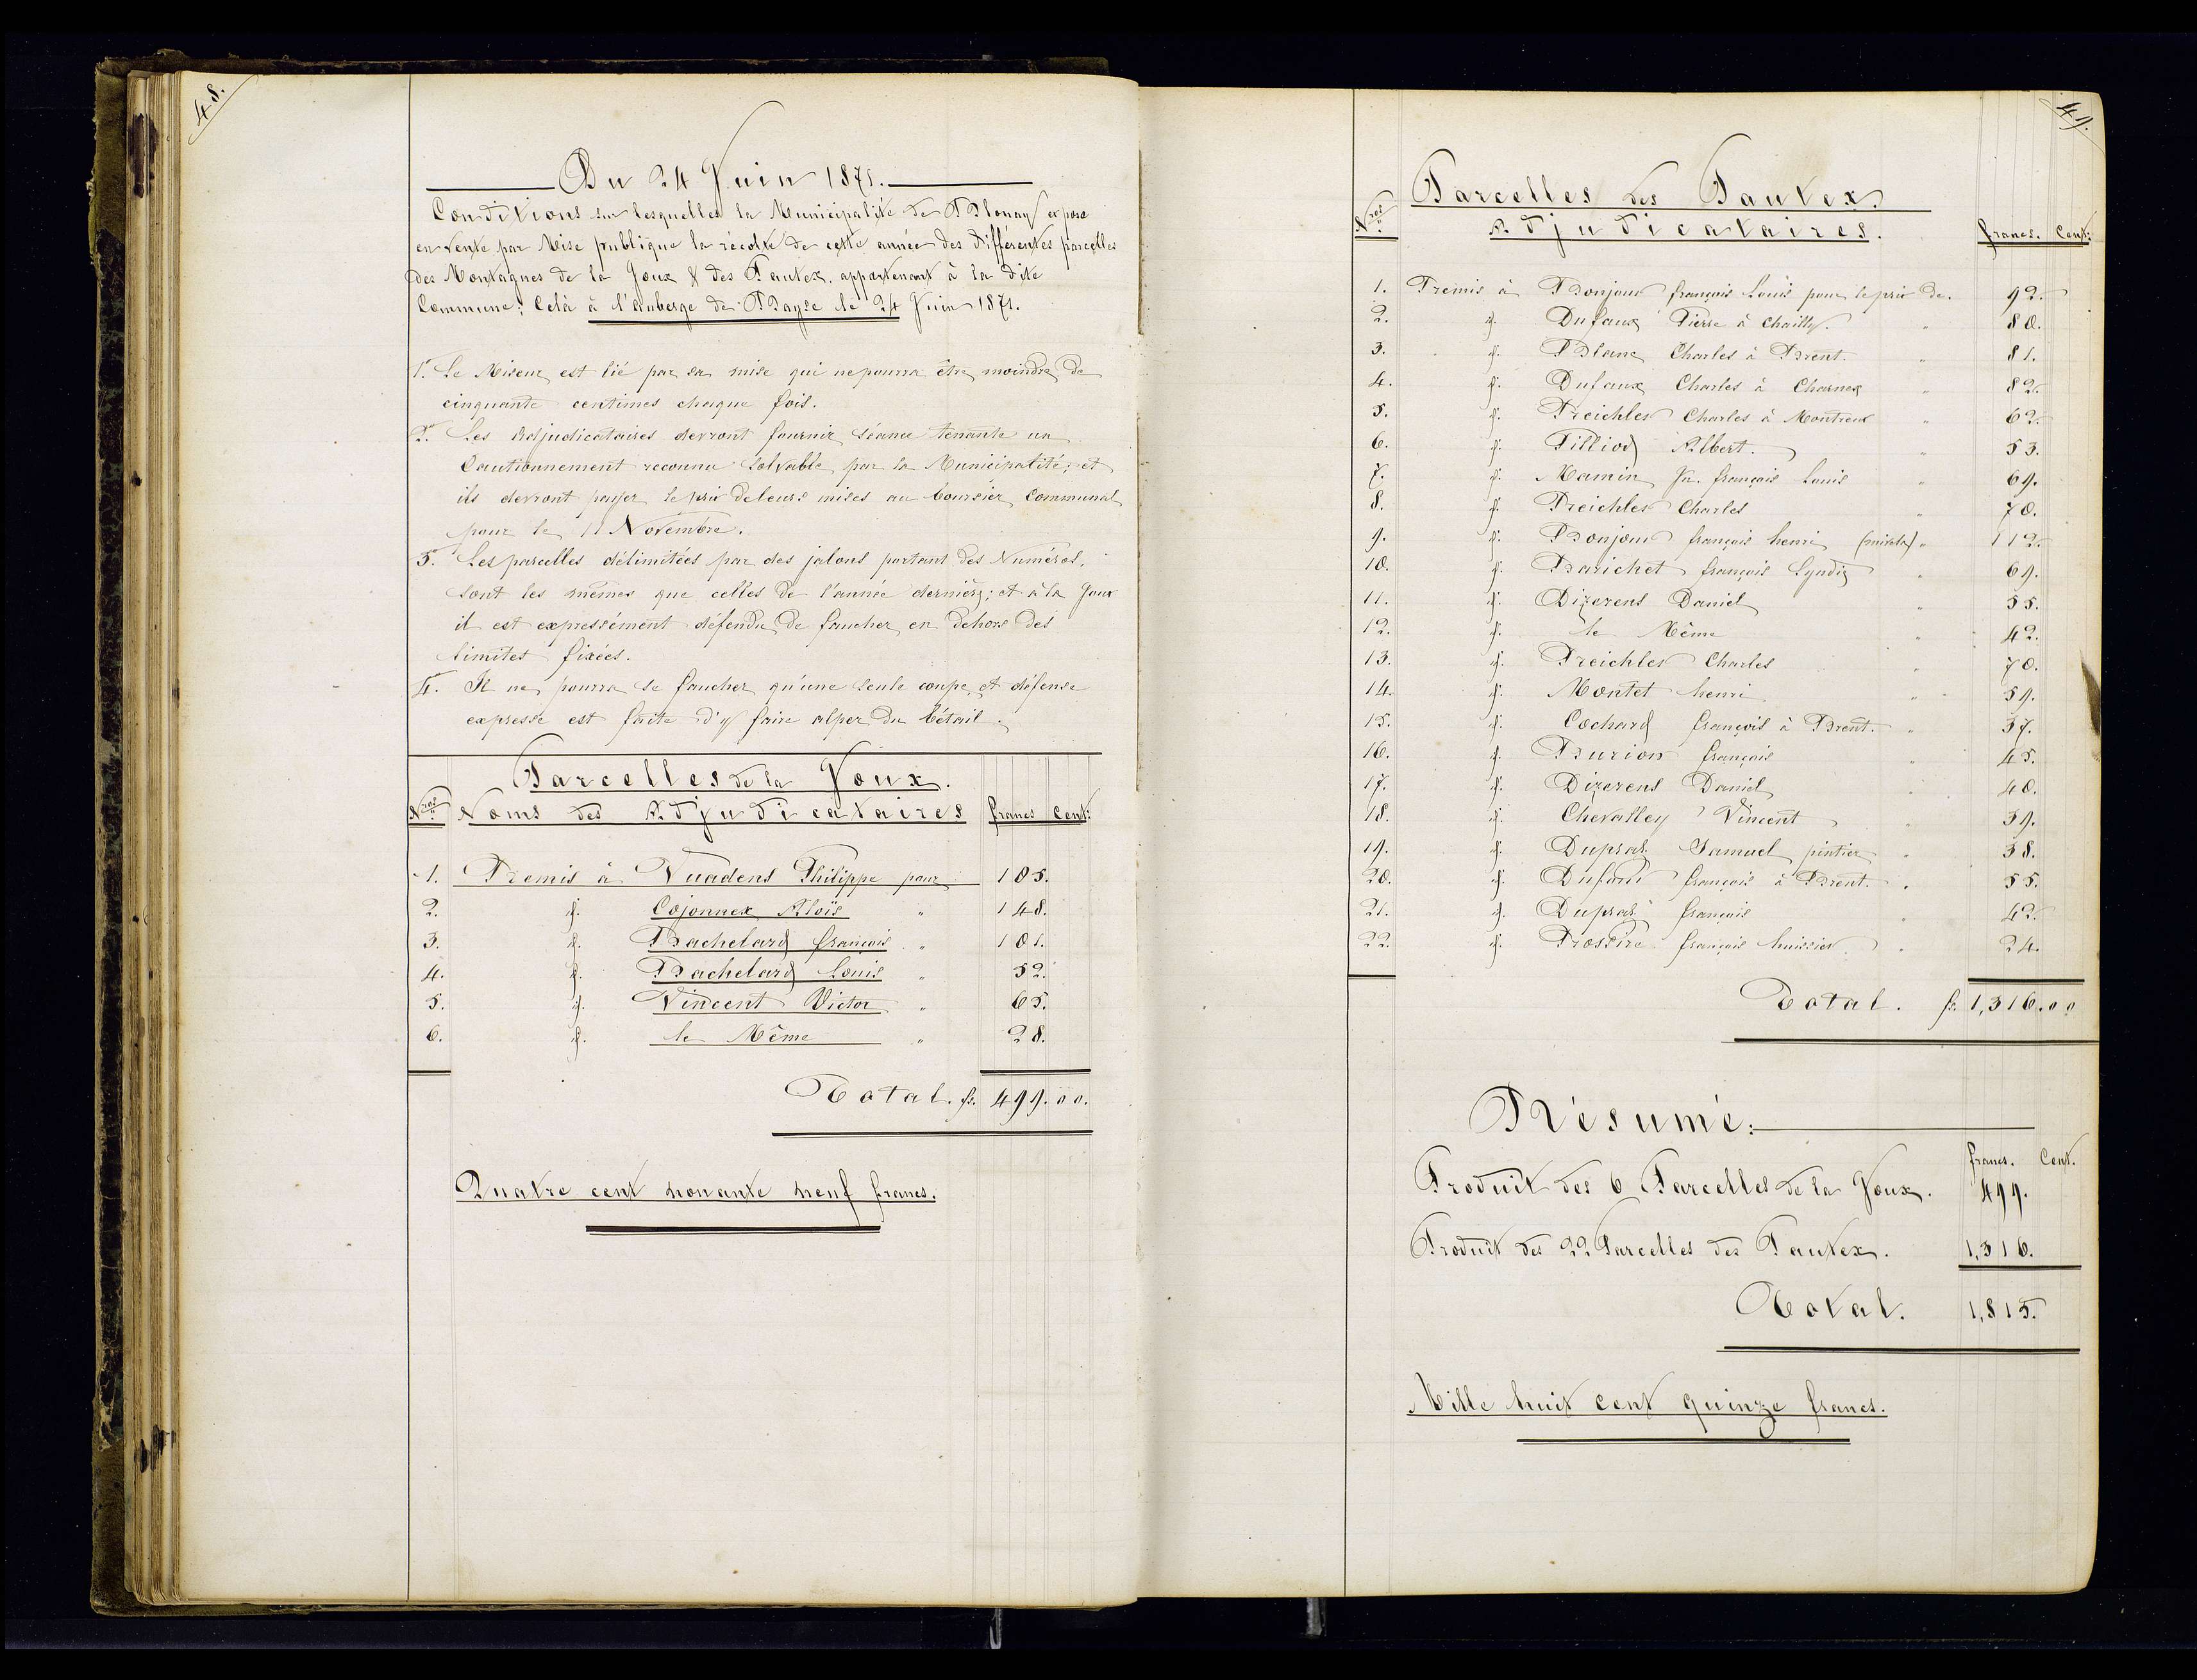 48.
Du 24 Juin 1871.
Conditions sur lesquelles la Municipalité de Blonay expose
en vente par Mise publique la récolte de cette année des différentes parcelles
des Montagnes de la Joux & des Pautex, appartenant à la dite
Commune; Celà à l'auberge de Bayse le 24 Juin 1871.
1.° Le Miseur est lié par sa mise qui ne pourra être moindre de
cinquante centimes chaque fois.
2.° Les Adjudicataires devront fournir séance tenante un
Cautionnement reconnu solvable par la Municipalité; et
ils devront payer le prix de leurs mises au boursier Communal
pour le 11 Novembre.
3.° Les parcelles délimitées par des jalons portant des Numéros,
sont les mêmes que celles de l'année dernière; et à la Joux
il est expressément défendu de faucher en dehors des
limites fixées.
4.° Il ne pourra se faucher qu'une seule coupe, et défense
expresse est faite d'y faire alper du bétail.
Parcelles de la Joux.
Nros Noms des Adjudicataires francs Cent:
1. Remis à Vuadens Philippe pour 105.
2. id. Cojonnex Aloïs " 148.
3. id. Bachelard françois " 101.
4. id. Bachelard Louis " 52.
5. id. Vincent Victor " 65.
6. id. le Même " 28.
Total. fr. 499.00.
Quatre cent nonante neuf francs.
49.
Parcelles des Pautex.
Nros Adjudicataires. francs. Cent:
1. Remis à Bonjour françois Louis pour le prix de. 92.
2. id. Dufaux Pierre à Chailly. " 80.
3. id. Blanc Charles à Brent. " 81.
4. id. Dufaux Charles à Charnex " 82.
5. id. Treichler Charles à Montreux " 62.
6. id. Pilliod Albert. " 53.
7. id. Mamin Jn. françois Louis " 69.
8. id. Treichler Charles " 70.
9. id. Bonjour françois henri " 112.
10. id. Barichet françois Syndic " 69.
11. id. Dizerens Daniel " 55.
12. id. le Même " 42.
13. id. Treichler Charles " 70.
14. id. Montet henri " 59.
15. id. Cochard françois à Brent. " 37.
16. id. Burion françois " 45.
17. id. Dizerens Daniel " 40.
18. id. Chevalley Vincent " 39.
19. id. Dupraz Samuel pintier " 38.
20. id. Dufaux françois à Brent. " 55.
21. id. Dupraz françois " 42.
22. id. françois huissier " 24.
Total. fr. 1,316.00
Résumé:
francs. Cent.
Produit des 6 Parcelles de la Joux. 499.
Produit des 22 Parcelles des Pautex. 1,316.
Total. 1,815.
Mille huit cent quinze francs.